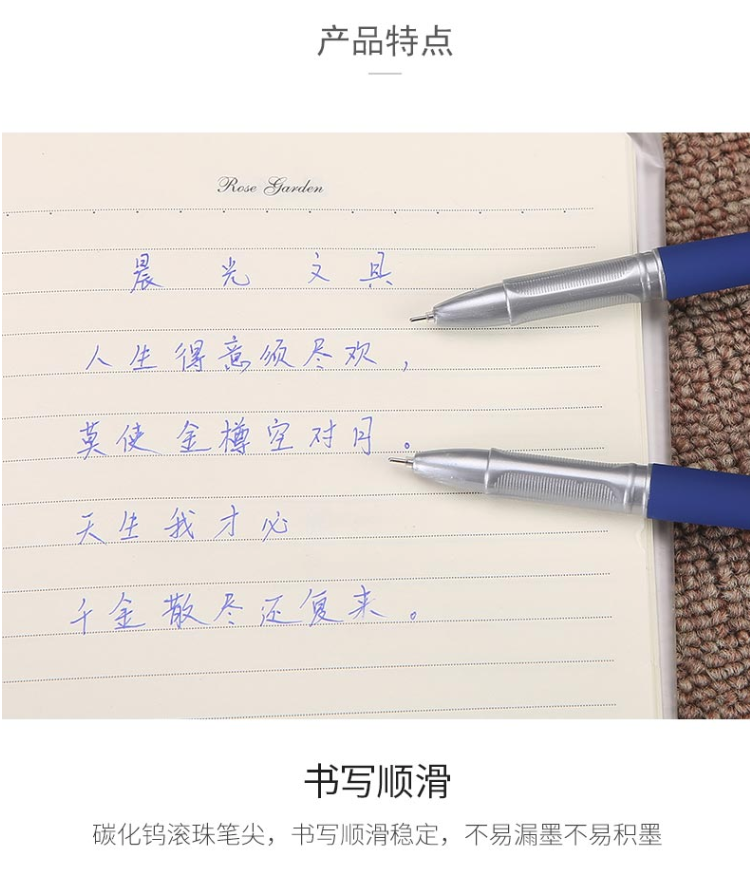 产品特点
Rose Garden
晨光文具
人生得意须尽欢，
莫使金樽空对月。
天生我才必
千金散尽还复来。
书写顺滑
碳化钨滚珠笔尖，书写顺滑稳定，不易漏墨不易积墨